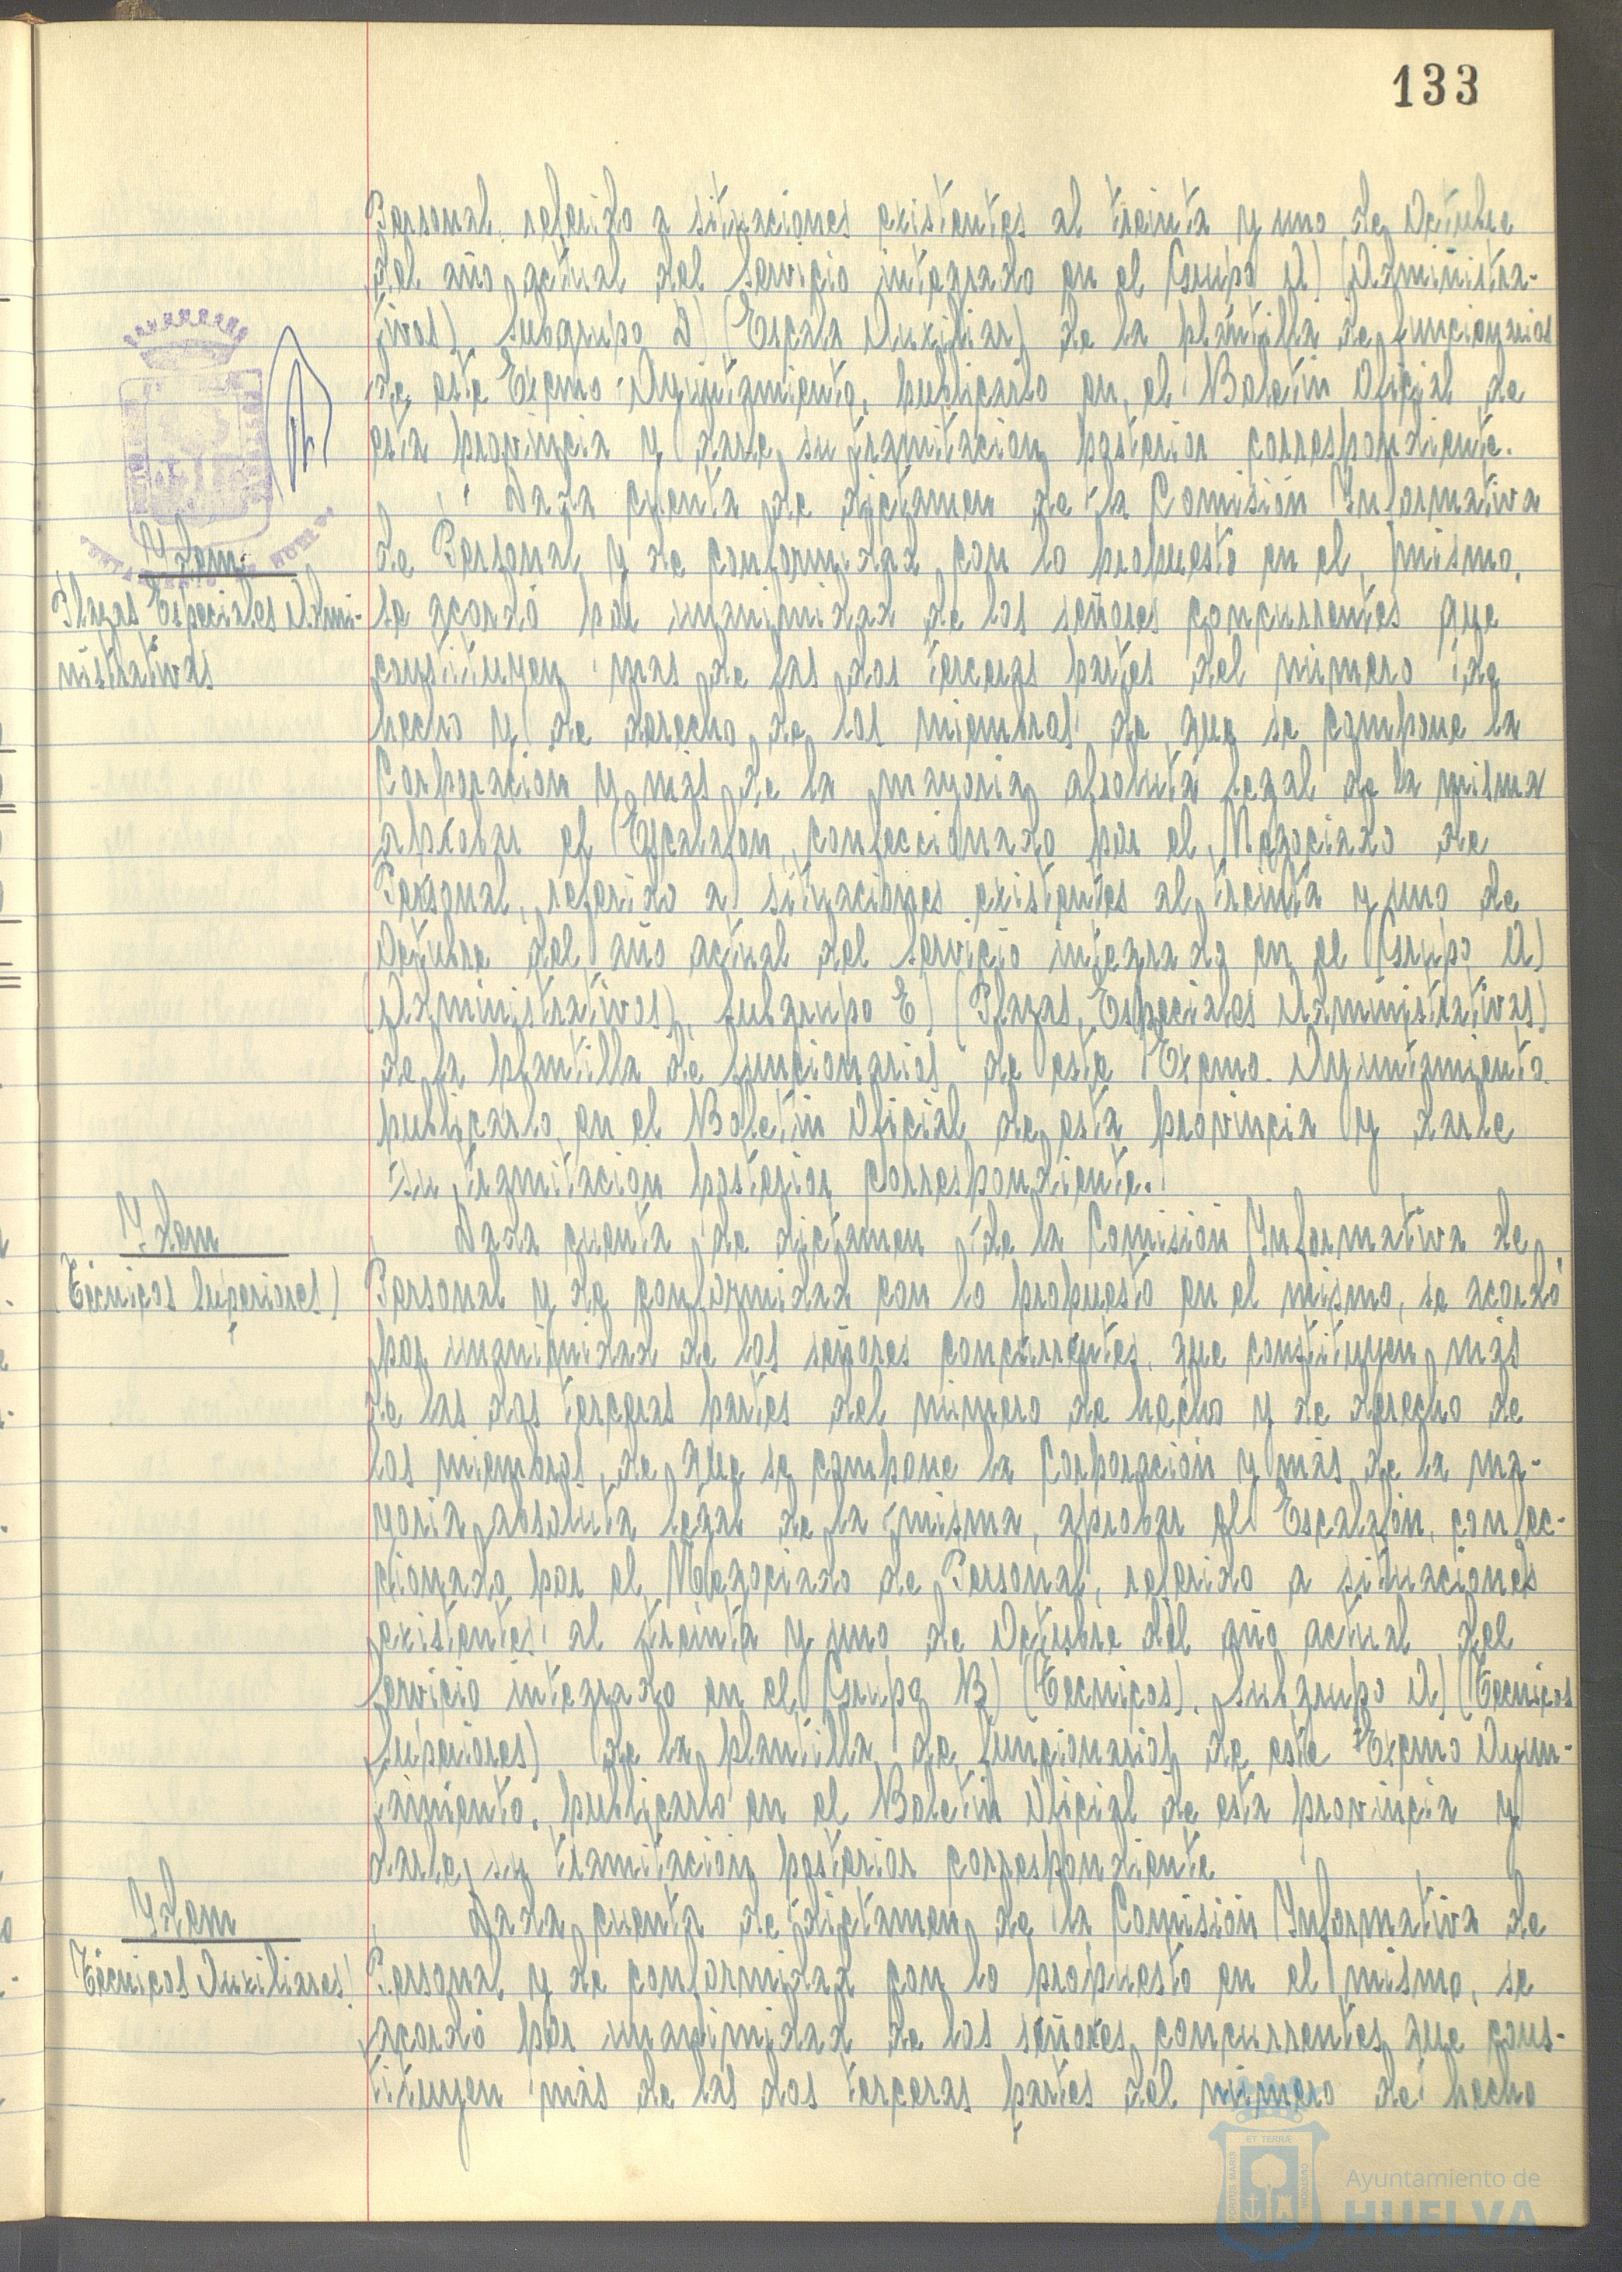 133
Personal, referido a situaciones existentes al treinta y uno de Octubre
del año actual del Servicio integrado en el Grupo A) (Administra-
tivos), Subgrupo D) (Escala Auxiliar) de la plantilla de funcionarios
de este Excmo. Ayuntamiento, publicarlo en el Boletín Oficial de
esta provincia y darle su tramitación posterior correspondiente.
Dada cuenta de dictamen de la Comisión Informativa
Ydem
de Personal y de conformidad con lo propuesto en el mismo,
Plazas Especiales Admi-
nistrativas
se acordó por unanimidad de los señores concurrentes que
constituyen mas de las dos terceras partes del número de
hecho y de derecho de los miembros de que se compone la
Corporación y más de la mayoria absoluta legal de la misma
aprobar el Escalafon, confeccionado por el Negociado de
Personal, referido a situaciones existentes al treinta y uno de
Octubre del año actual del Servicio integrado en el Grupo A)
(Administrativos), Subgrupo E) (Plazas Especiales Administrativas)
de la plantilla de funcionarios de este Excmo. Ayuntamiento,
publicarlo en el Boletín Oficial de esta provincia y darle
su tramitación posterior correspondiente.
Ydem
Técnicos Superiores)
Dada cuenta de dictamen de la Comisión Informativa de
Personal y de conformidad con lo propuesto en el mismo, se acordó
por unanimidad de los señores concurrentes, que constituyen más
de las dos terceras partes del número de hecho y de derecho de
los miembros, de que se compone la Corporación y más de la ma-
yoria absoluta legal de la misma, aprobar el Escalafón, confec-
cionado por el Negociado de Personal, referido a situaciones
existentes al treinta y uno de Octubre del año actual del
Servicio integrado en el Grupo B) (Tecnicos), Subgrupo A) (Tecnicos
Superiores) de la plantilla de funcionarios de este Excmo Ayun-
tamiento, publicarlo en el Boletín Oficial de esta provincia y
darle su tramitación posterior correspondiente
Ydem
Técnicos Auxiliares)
Dada cuenta de dictamen de la Comisión Informativa de
Personal y de conformidad con lo propuesto en el mismo, se
acordó por unanimidad de los señores concurrentes que cons-
tituyen más de las dos terceras partes del número de hecho
Ayuntamiento de
HUELVA